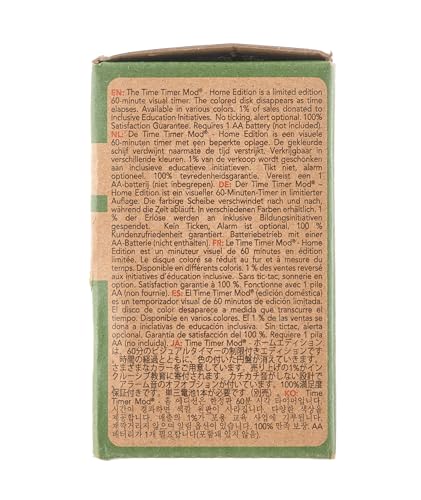 EN: The Time Timer Mod® - Home Edition is a limited edition
60-minute visual timer. The colored disk disappears as time
elapses. Available in various colors. 1% of sales donated to
Inclusive Education Initiatives. No ticking, alert optional. 100%
Satisfaction Guarantee. Requires 1 AA battery (not included).
NL: De Time Timer Mod® - Home Edition is een visuele
60-minuten timer met een beperkte oplage. De gekleurde
schijf verdwijnt naarmate de tijd verstrijkt. Verkrijgbaar in
verschillende kleuren. 1% van de verkoop wordt geschonken
aan inclusieve educatieve initiatieven. Tikt niet, alarm
optioneel. 100% tevredenheidsgarantie. Vereist een 1
AA-batterij (niet inbegrepen). DE: Der Time Timer Mod® -
Home Edition ist ein visueller 60-Minuten-Timer in limitierter
Auflage. Die farbige Scheibe verschwindet nach und nach,
während die Zeit abläuft. In verschiedenen Farben erhältlich. 1
% der Erlöse werden an inklusive Bildungsinitiativen
gespendet. Kein Ticken, Alarm ist optional. 100 %
Kundenzufriedenheit garantiert. Batteriebetrieb mit einer
AA-Batterie (nicht enthalten). FR: Le Time Timer Mod® - Home
Edition est un minuteur visuel de 60 minutes en édition
limitée. Le disque coloré se réduit au fur et à mesure du
temps. Disponible en différents coloris. 1 % des ventes reversé
aux initiatives d'éducation inclusive. Sans tic-tac, sonnerie
en option. Satisfaction garantie à 100 %. Fonctionne avec 1 pile
AA (non fournie). ES: El Time Timer Mod® (edición doméstica)
es un temporizador visual de 60 minutos de edición limitada.
El disco de color desaparece a medida que transcurre el
tiempo. Disponible en varios colores. El 1 % de las ventas se
dona a iniciativas de educación inclusiva. Sin tictac, alerta
opcional. Garantía de satisfacción del 100 %. Requiere 1 pila
AA (no incluida). JA: Time Timer Mod® - ホームエディション
は、60分のビジュアルタイマーの制限付きエディションです。
時間の経過とともに、色の付いた円盤が消えていきます。
さまざまなカラーをご用意しています。売り上げの1%がイン
クルーシブ教育に寄付されます。カチカチ音がしない設計で
アラーム音のオフオプションが付いています。100%満足度
保証付きです。単三電池1本が必要です（別売）。KO: Time
Timer Mod® - 홈 에디션은 한정판 60분 시각 타이머입니다.
시간이 경과하면 색깔 원판이 사라집니다. 다양한 색상을
제공합니다. 매출의 1%가 포용 교육 사업에 기부됩니다.
째깍거리지 않으며 알림 옵션이 있습니다. 100% 만족 보장. AA
배터리가 1개 필요합니다(포함돼 있지 않음).